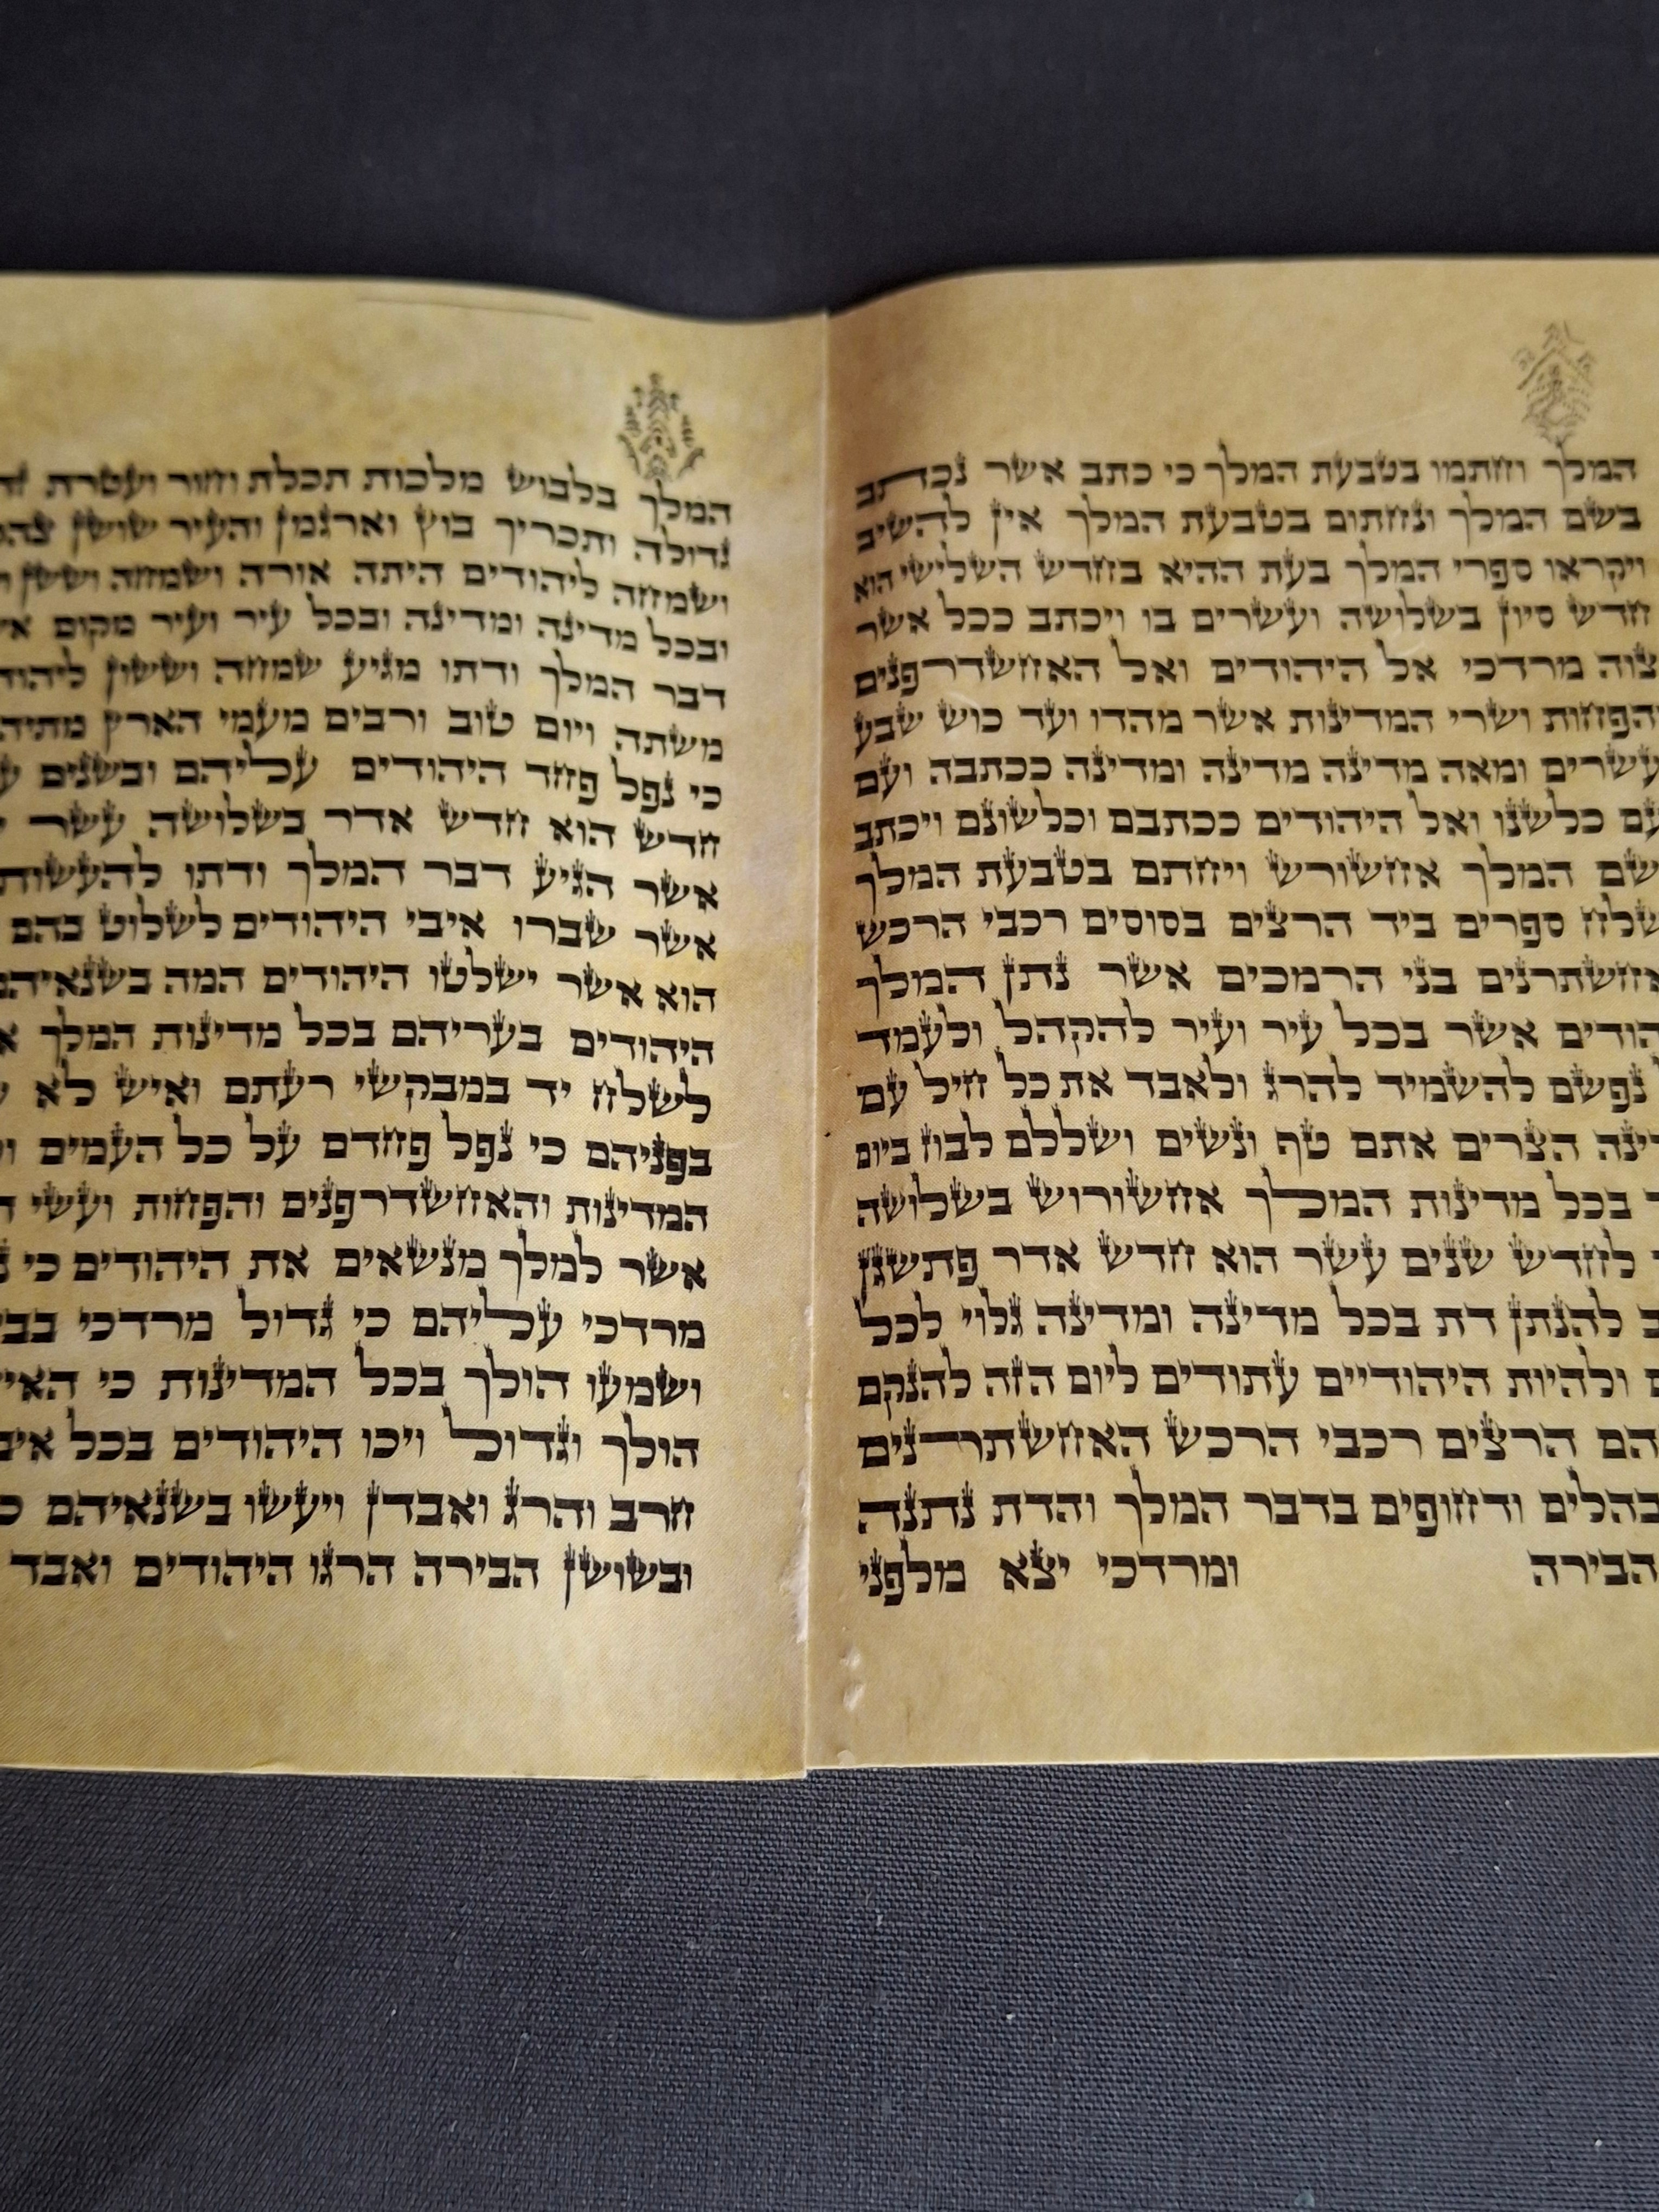 המלך וחתמו בטבעת המלך כי כתב אשר נכתב
בשם המלך ונחתום בטבעת המלך אין להשיב
ויקראו ספרי המלך בעת ההיא בחדש השלישי הוא
חדש סיון בשלושה ועשרים בו ויכתב ככל אשר
צוה מרדכי אל היהודים ואל האחשדרפנים
והפחות ושרי המדינות אשר מהדו ועד כוש שבע
עשרים ומאה מדינה מדינה ומדינה ככתבה ועם
עם כלשנו ואל היהודים ככתבם וכלשונם ויכתב
שם המלך אחשורש ויחתם בטבעת המלך
שלח ספרים ביד הרצים בסוסים רכבי הרכש
אחשתרנים בני הרמכים אשר נתן המלך
הודים אשר בכל עיר ועיר להקהל ולעמד
נפשם להשמיד להרג ולאבד את כל חיל עם
דינה הצרים אתם טף ונשים ושללם לבוז ביום
בכל מדינות המלך אחשורוש בשלושה
לחדש שנים עשר הוא חדש אדר פתשגן
להנתן דת בכל מדינה ומדינה גלוי לכל
ולהיות היהודיים עתודים ליום הזה להנקם
הם הרצים רכבי הרכש האחשתרנים
בהלים ודחופים בדבר המלך והדת נתנה
הבירה ומרדכי יצא מלפני
המלך בלבוש מלכות תכלת וחור ועטרת
גדולה ותכריך בוץ וארגמן והעיר שושן צהלה
ושמחה ליהודים היתה אורה ושמחה וששן
ובכל מדינה ומדינה ובכל עיר ועיר מקום
דבר המלך ודתו מגיע שמחה וששון ליהוד
משתה ויום טוב ורבים מעמי הארץ מתיה
כי נפל פחד היהודים עליהם ובשנים
חדש הוא חדש אדר בשלושה עשר
אשר הגיע דבר המלך ודתו להעשות
אשר שברו איבי היהודים לשלוט בהם
הוא אשר ישלטו היהודים המה בשנאיהם
היהודים בעריהם בכל מדינות המלך
לשלח יד במבקשי רעתם ואיש לא
בפניהם כי נפל פחדם על כל העמים
המדינות והאחשדרפנים והפחות ועשי
אשר למלך מנשאים את היהודים כי
מרדכי עליהם כי גדול מרדכי בבי
ושמעו הולך בכל המדינות כי האי
הולך וגדול ויכו היהודים בכל איב
חרב והרג ואבדן ויעשו בשנאיהם
ובשושן הבירה הרגו היהודים ואבד